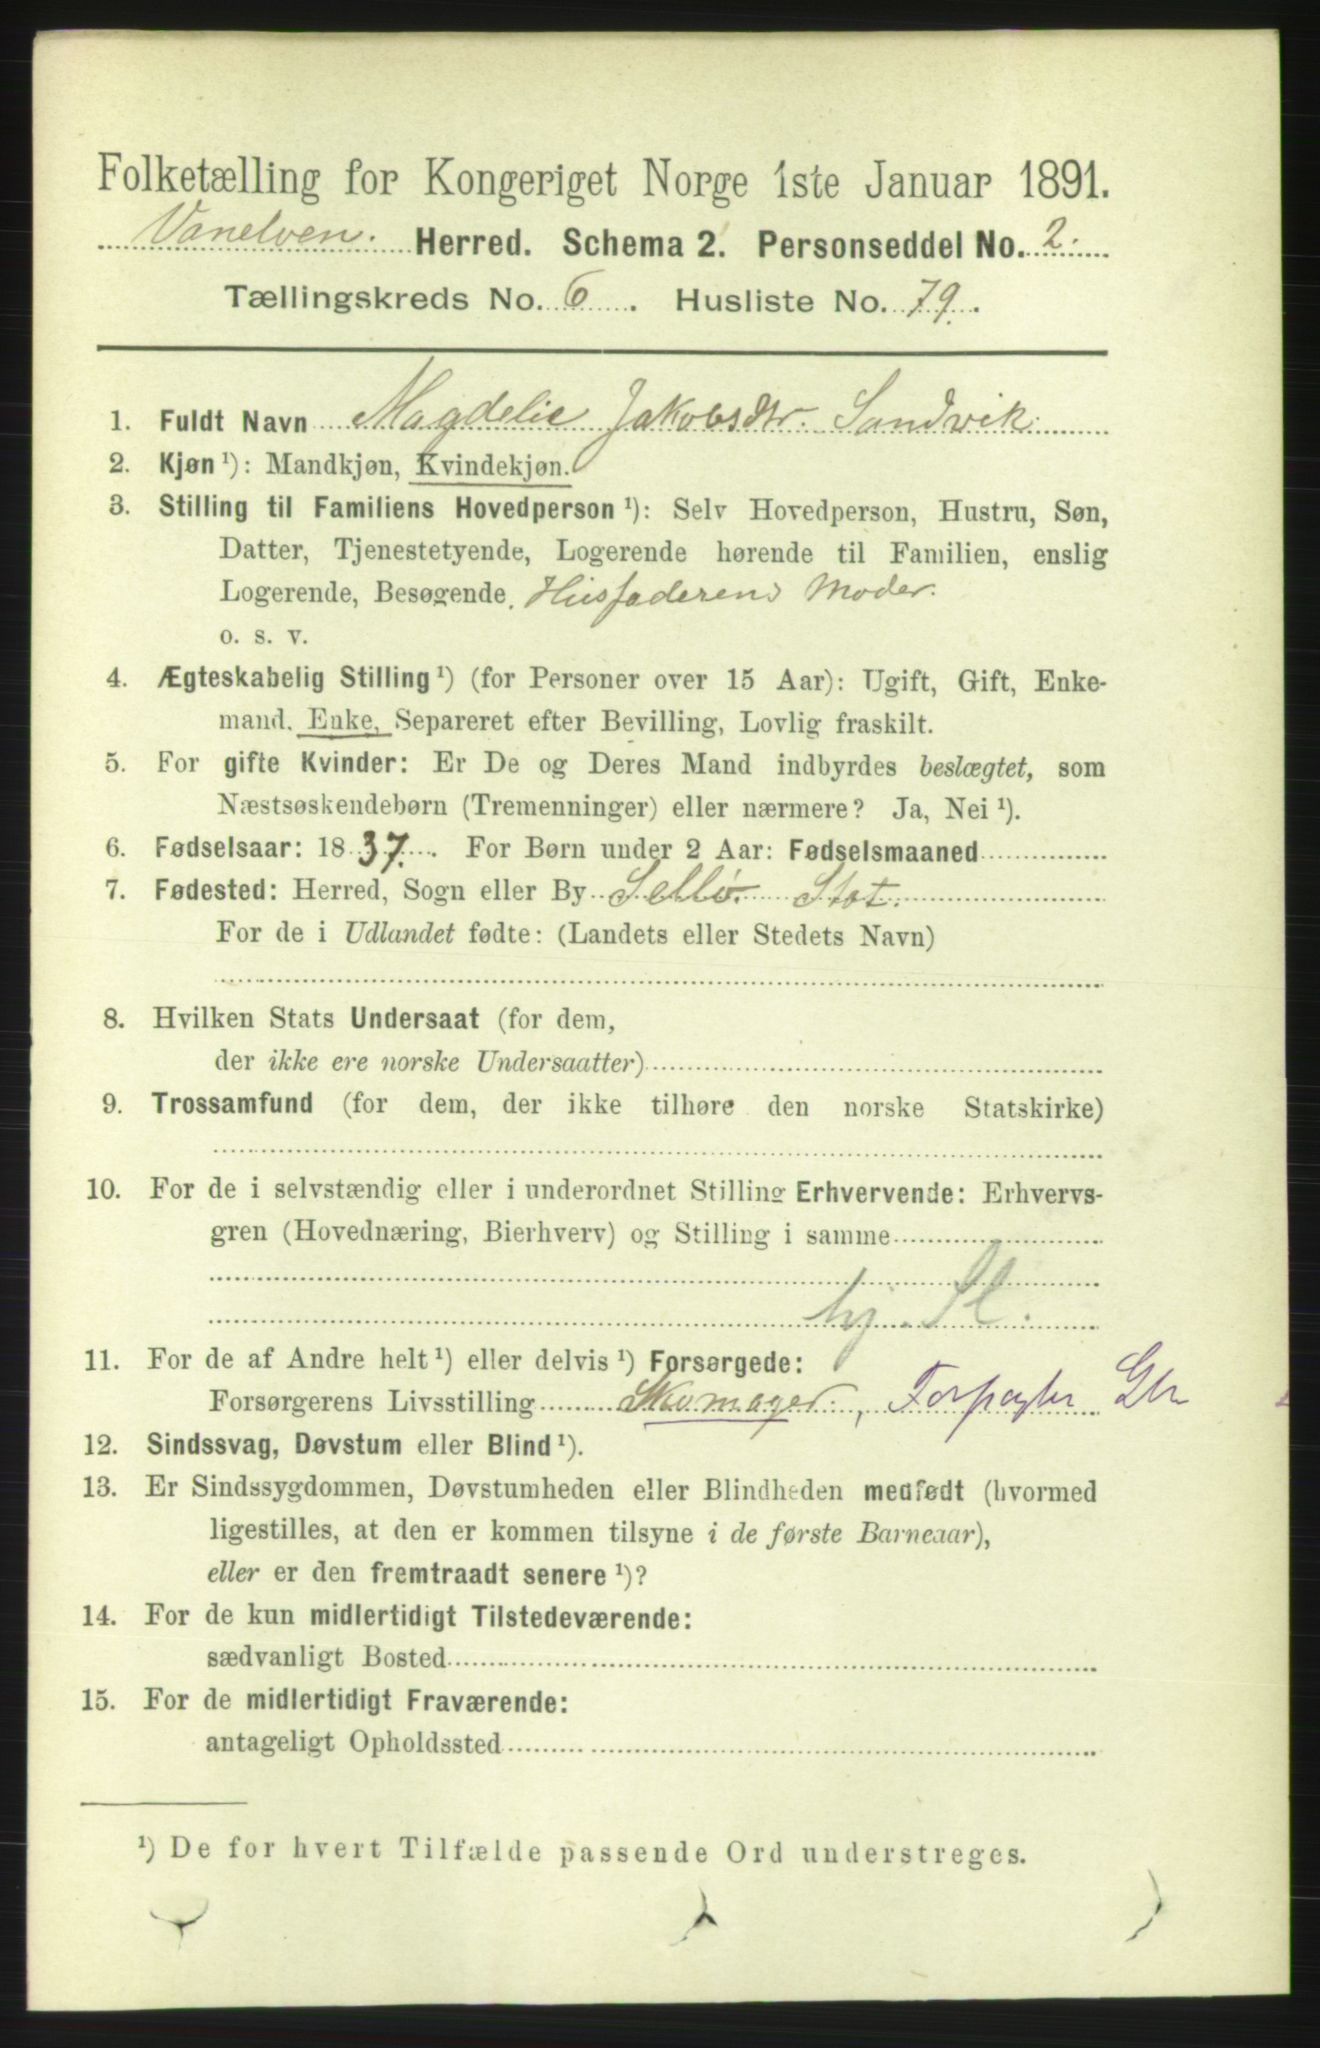 Folketælling for Kongeriget Norge 1ste Januar 1891.
Vanelven. Herred. Schema 2. Personseddel No. 2.
Tællingskreds No. 6. Husliste No. 79.
1. Fuldt Navn Magdelie Jakobsdtr. Sandvik.
2. Kjøn ¹): Mandkjøn, Kvindekjøn.
3. Stilling til Familiens Hovedperson ¹): Selv Hovedperson, Hustru, Søn,
Datter, Tjenestetyende, Logerende hørende til Familien, enslig
Logerende, Besøgende. Husfaderens Moder.
o. s. v.
4. Ægteskabelig Stilling ¹) (for Personer over 15 Aar): Ugift, Gift, Enke-
mand, Enke, Separeret efter Bevilling, Lovlig fraskilt.
5. For gifte Kvinder: Er De og Deres Mand indbyrdes beslægtet, som
Næstsøskendebørn (Tremenninger) eller nærmere? Ja, Nei ¹).
6. Fødselsaar: 1837. For Børn under 2 Aar: Fødselsmaaned
7. Fødested: Herred, Sogn eller By Sellø. Stat.
For de i Udlandet fødte: (Landets eller Stedets Navn)
8. Hvilken Stats Undersaat (for dem,
der ikke ere norske Undersaatter)
9. Trossamfund (for dem, der ikke tilhøre den norske Statskirke)
10. For de i selvstændig eller i underordnet Stilling Erhvervende: Erhvervs-
gren (Hovednæring, Bierhverv) og Stilling i samme
hj. Sl.
11. For de af Andre helt ¹) eller delvis ¹) Forsørgede:
Forsørgerens Livsstilling Skomager., Forpagter Gbr
12. Sindssvag, Døvstum eller Blind ¹).
13. Er Sindssygdommen, Døvstumheden eller Blindheden medfødt (hvormed
ligestilles, at den er kommen tilsyne i de første Barneaar),
eller er den fremtraadt senere ¹)?
14. For de kun midlertidigt Tilstedeværende:
sædvanligt Bosted
15. For de midlertidigt Fraværende:
antageligt Opholdssted
¹) De for hvert Tilfælde passende Ord understreges.